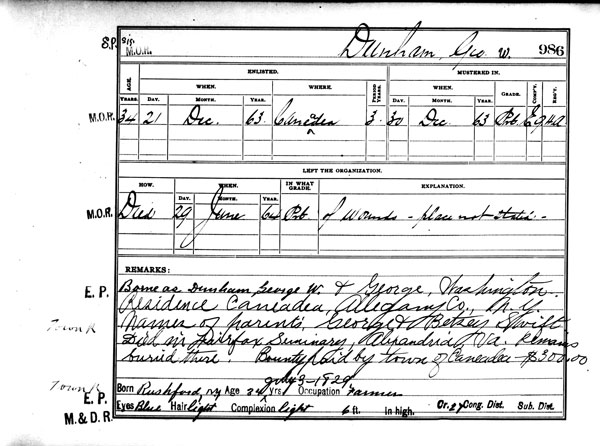 E.P. M.O.R. Dunham, Geo. W. 986
AGE. ENLISTED. MUSTERED IN.
WHEN. WHERE. PERIOD YEARS. WHEN. GRADE. COMP'Y. REG'T.
YEARS. DAY. MONTH. YEAR. DAY. MONTH. YEAR.
M.O.R. 34 21 Dec. 63 Caneadea 3 30 Dec 63 Prb. E
LEFT THE ORGANIZATION.
HOW. WHEN. IN WHAT GRADE. EXPLANATION.
DAY. MONTH. YEAR.
M.O.R. Died 29 June 64 Prb. of wounds - place not stated -
REMARKS:
E. P. Borne as Dunham, George W. & George, Washington.
Residence Caneadea, Allegany Co., N.Y.
Names of parents, George & Betsey Swift
Town R Died in Fairfax Seminary, Alexandria, Va. Remains
buried there. Bounty paid by town of Caneadea - $300.00
July 9-1829
Town R E. P. Born Rushford, NY Age 34 yrs Occupation Farmer
M. & D. R. Eyes Blue Hair light Complexion light 6 ft. In high. Or. 27 Cong. Dist. Sub. Dist.